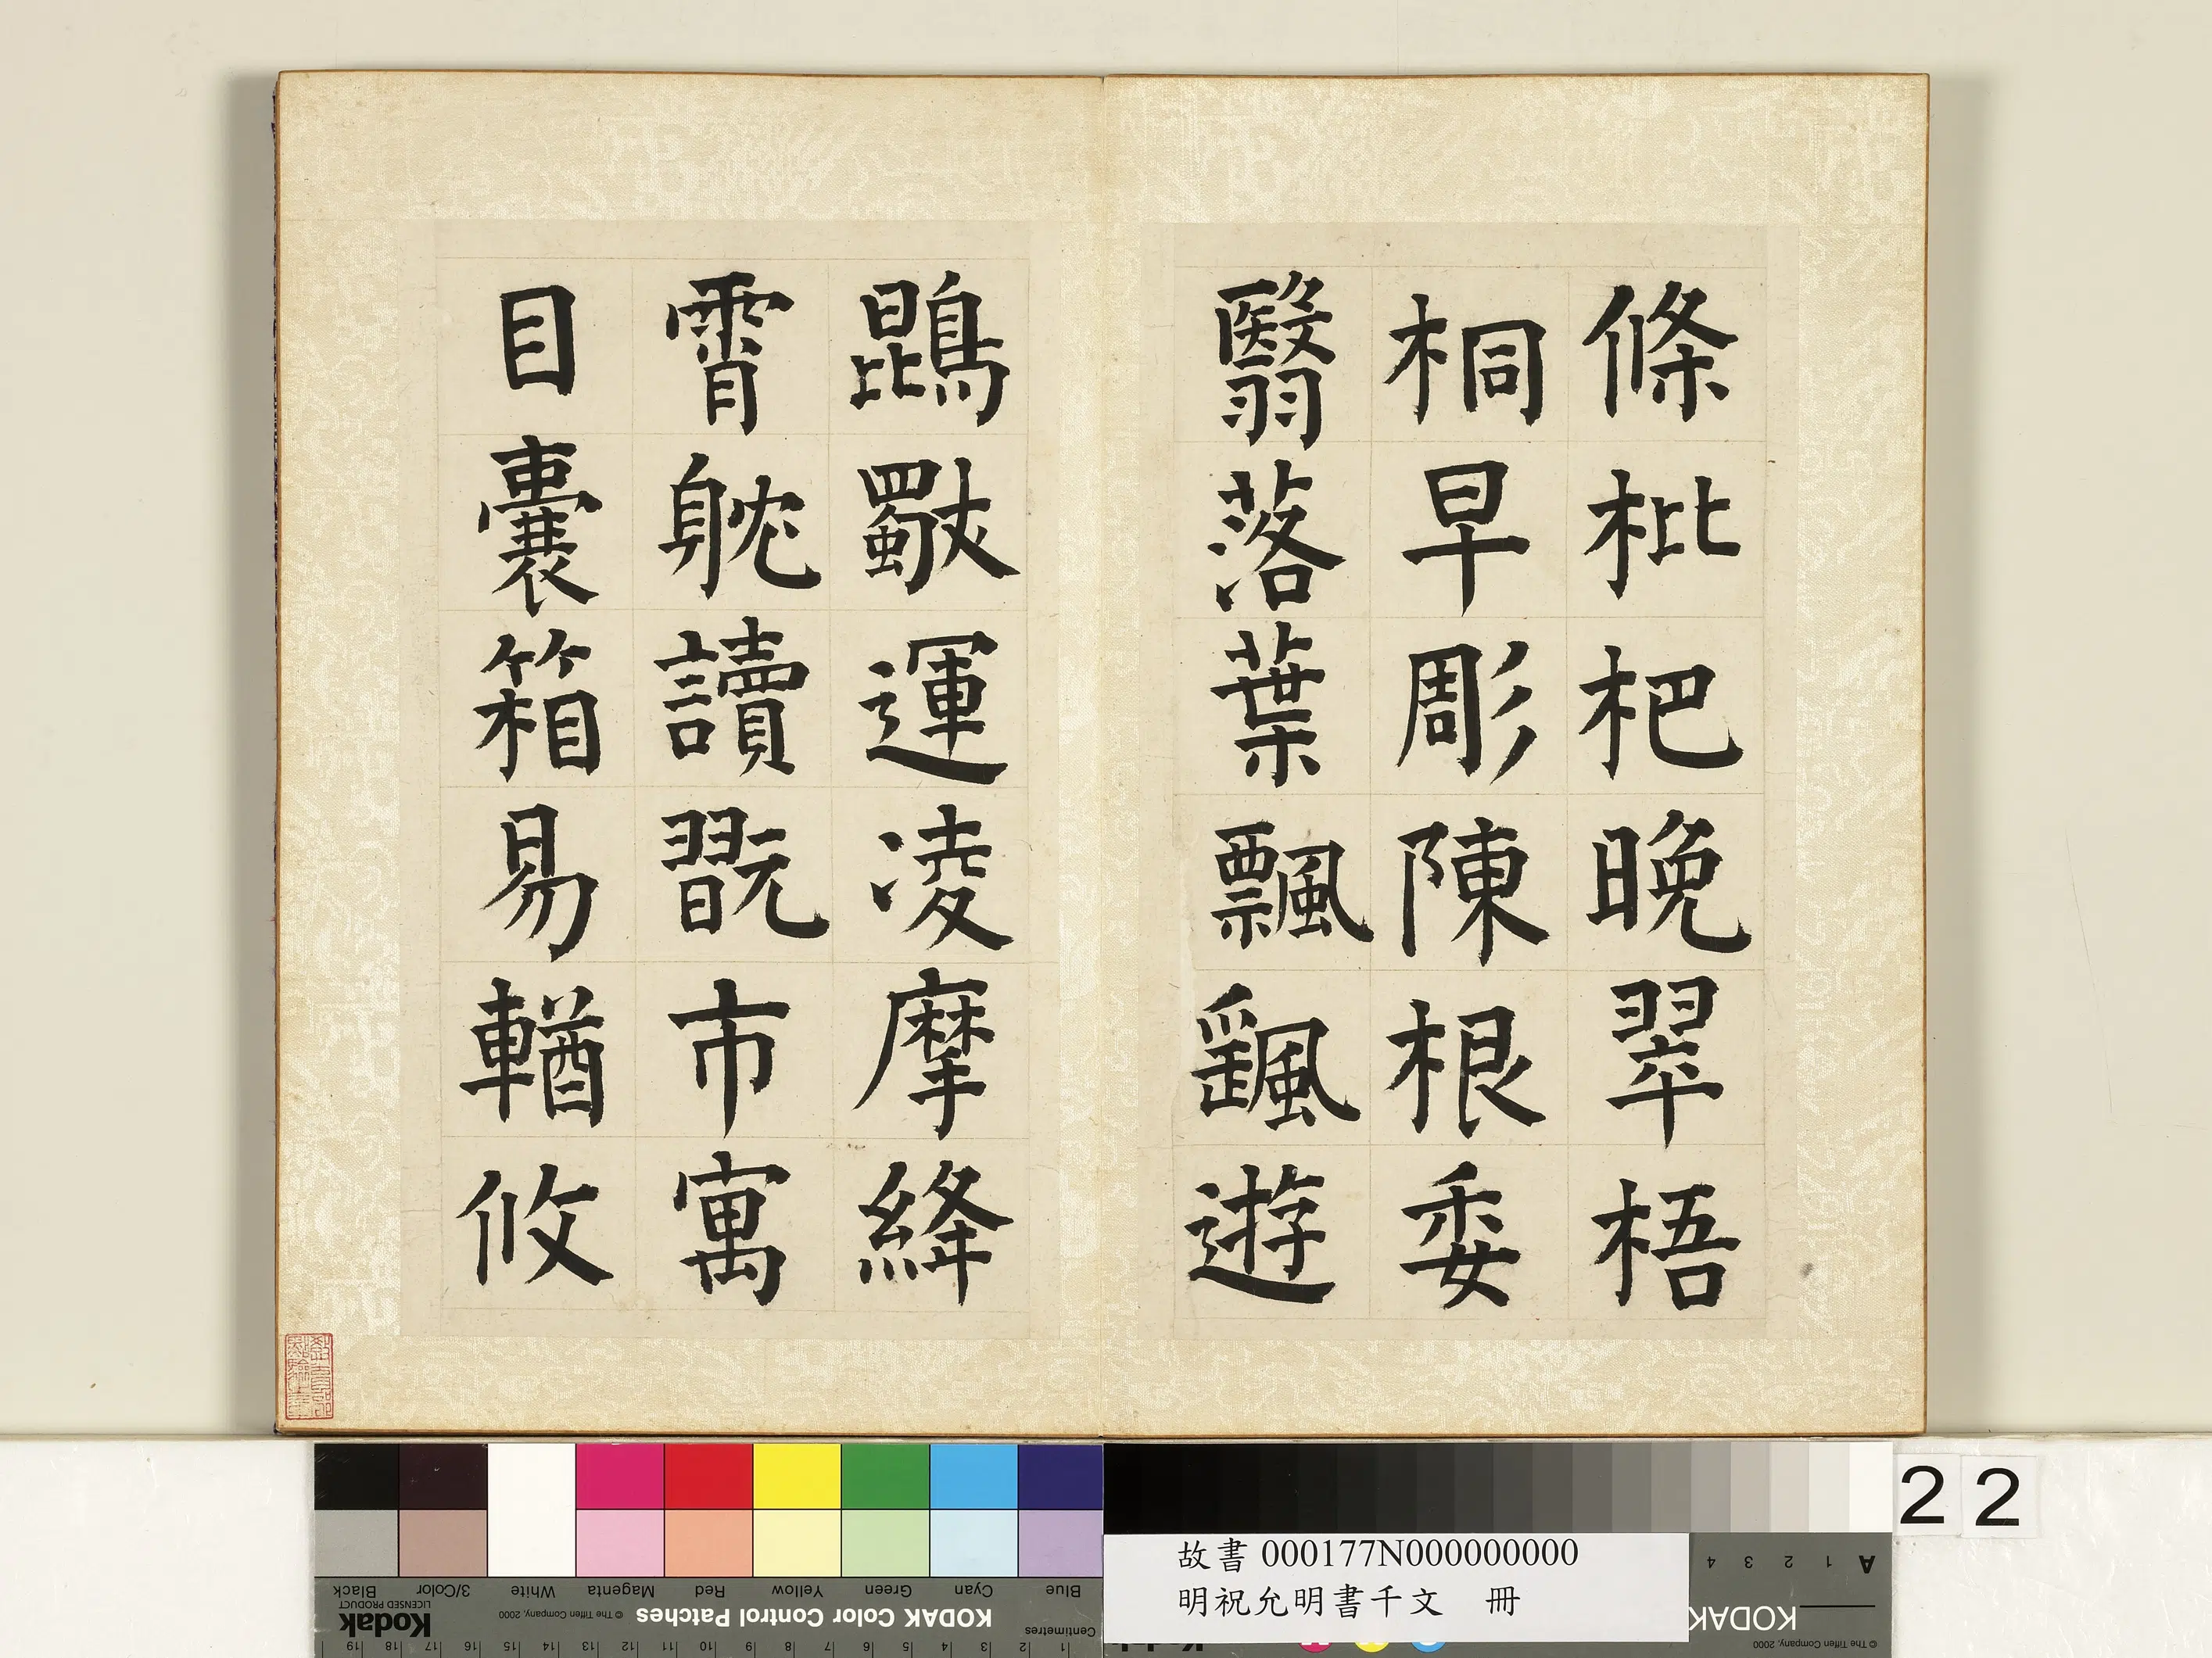 條枇杷晚翠梧
桐早彫陳根委
翳落葉飄颻遊
鵾獨運凌摩絳
霄躭讀翫市寓
目囊箱易輶攸
22
故書 000177N000000000
明祝允明書千文 冊
Blue
Cyan
Green
Yellow
Red
Magenta
White
3/Color
Black
KODAK Color Control Patches
© The Tiffen Company, 2000
Kodak
LICENSED PRODUCT
Centimetres
1 2 3 4 5 6 7 8 9 10 11 12 13 14 15 16 17 18 19
A 1 2 3 4
KODAK
© The Tiffen Company, 2000